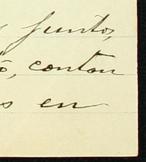 junto,
contou
s en